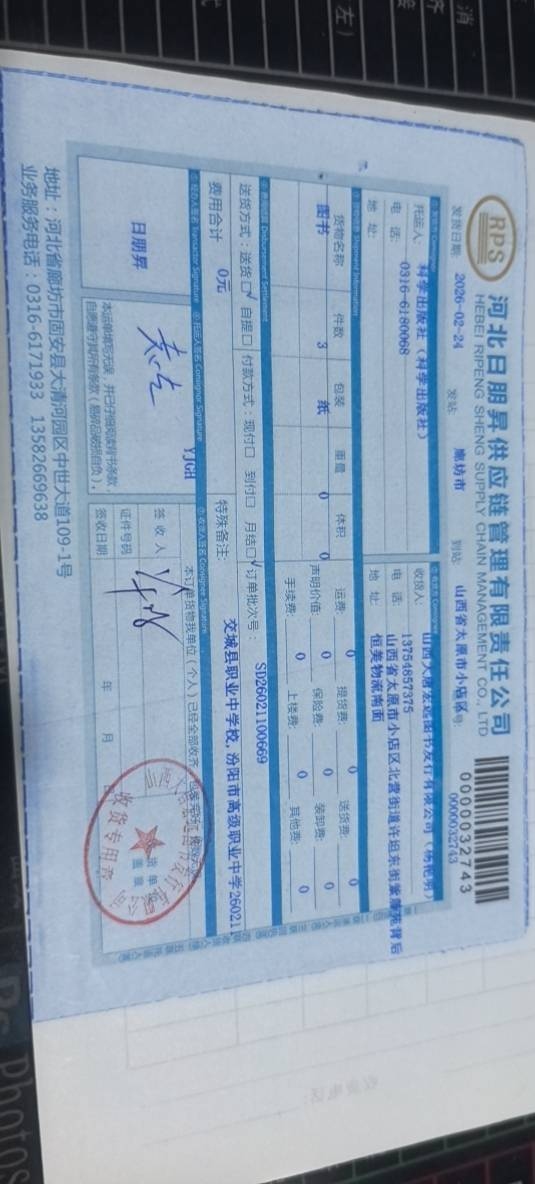 RPS
河北日朋昇供应链管理有限责任公司
HEBEI RIPENG SHENG SUPPLY CHAIN MANAGEMENT CO., LTD
0000032743
发货日期: 2026-02-24 发站: 廊坊市 到站: 山西省太原市小店区 号: 0000032743
托运人: 科学出版社（科学出版社）
电 话: 0316-6180068
地 址:
收货人: 山西大唐宏远图书发行有限公司
电 话: 13754857375
地 址: 山西省太原市小店区北营街道许坦东街紫藤苑背后
恒美物流南面
货物名称 件数 包装 重量 体积
图书 3 纸 0 0
运费: 0 提货费: 0 送货费: 0
声明价值: 0 保险费: 0 装卸费: 0
手续费: 0 上楼费: 0 其他费: 0
送货方式：送货☑ 自提□ 付款方式：现付□ 到付□ 月结☑ 订单批次号： SD26021100669
费用合计 0元 特殊备注: 交城县职业中学校,汾阳市高级职业中学26021
日朋昇
YJGH
本运单填写无误，并已仔细阅读背书条款，
自愿遵守其所有条款（易碎品破损自负）。
本订单货物我单位（个人）已经全部收齐
签 收 人
证件号码
签收日期 年 月
收货专用章
地址：河北省廊坊市固安县大清河园区中世大道109-1号
业务服务电话：0316-6171933 13582669638